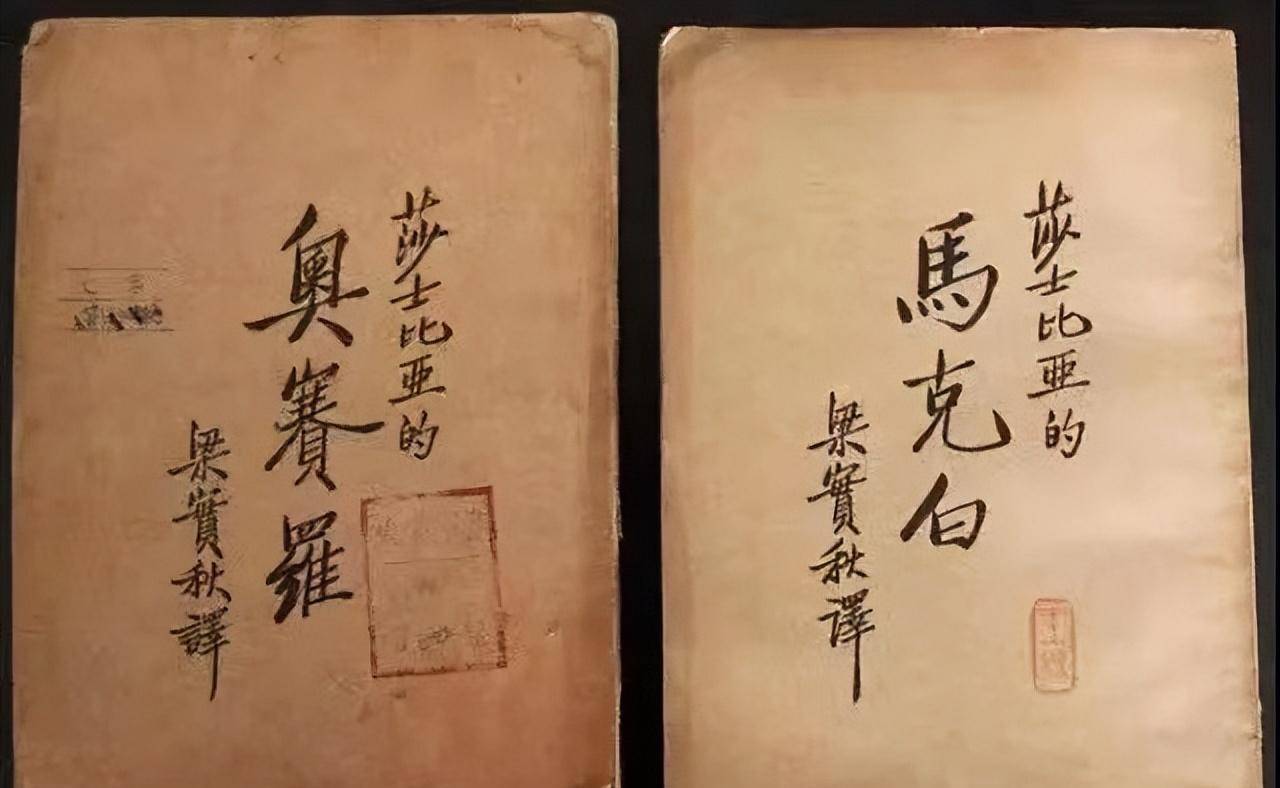 莎士比亚的
奧賽羅
梁實秋譯
莎士比亚的
馬克白
梁實秋譯